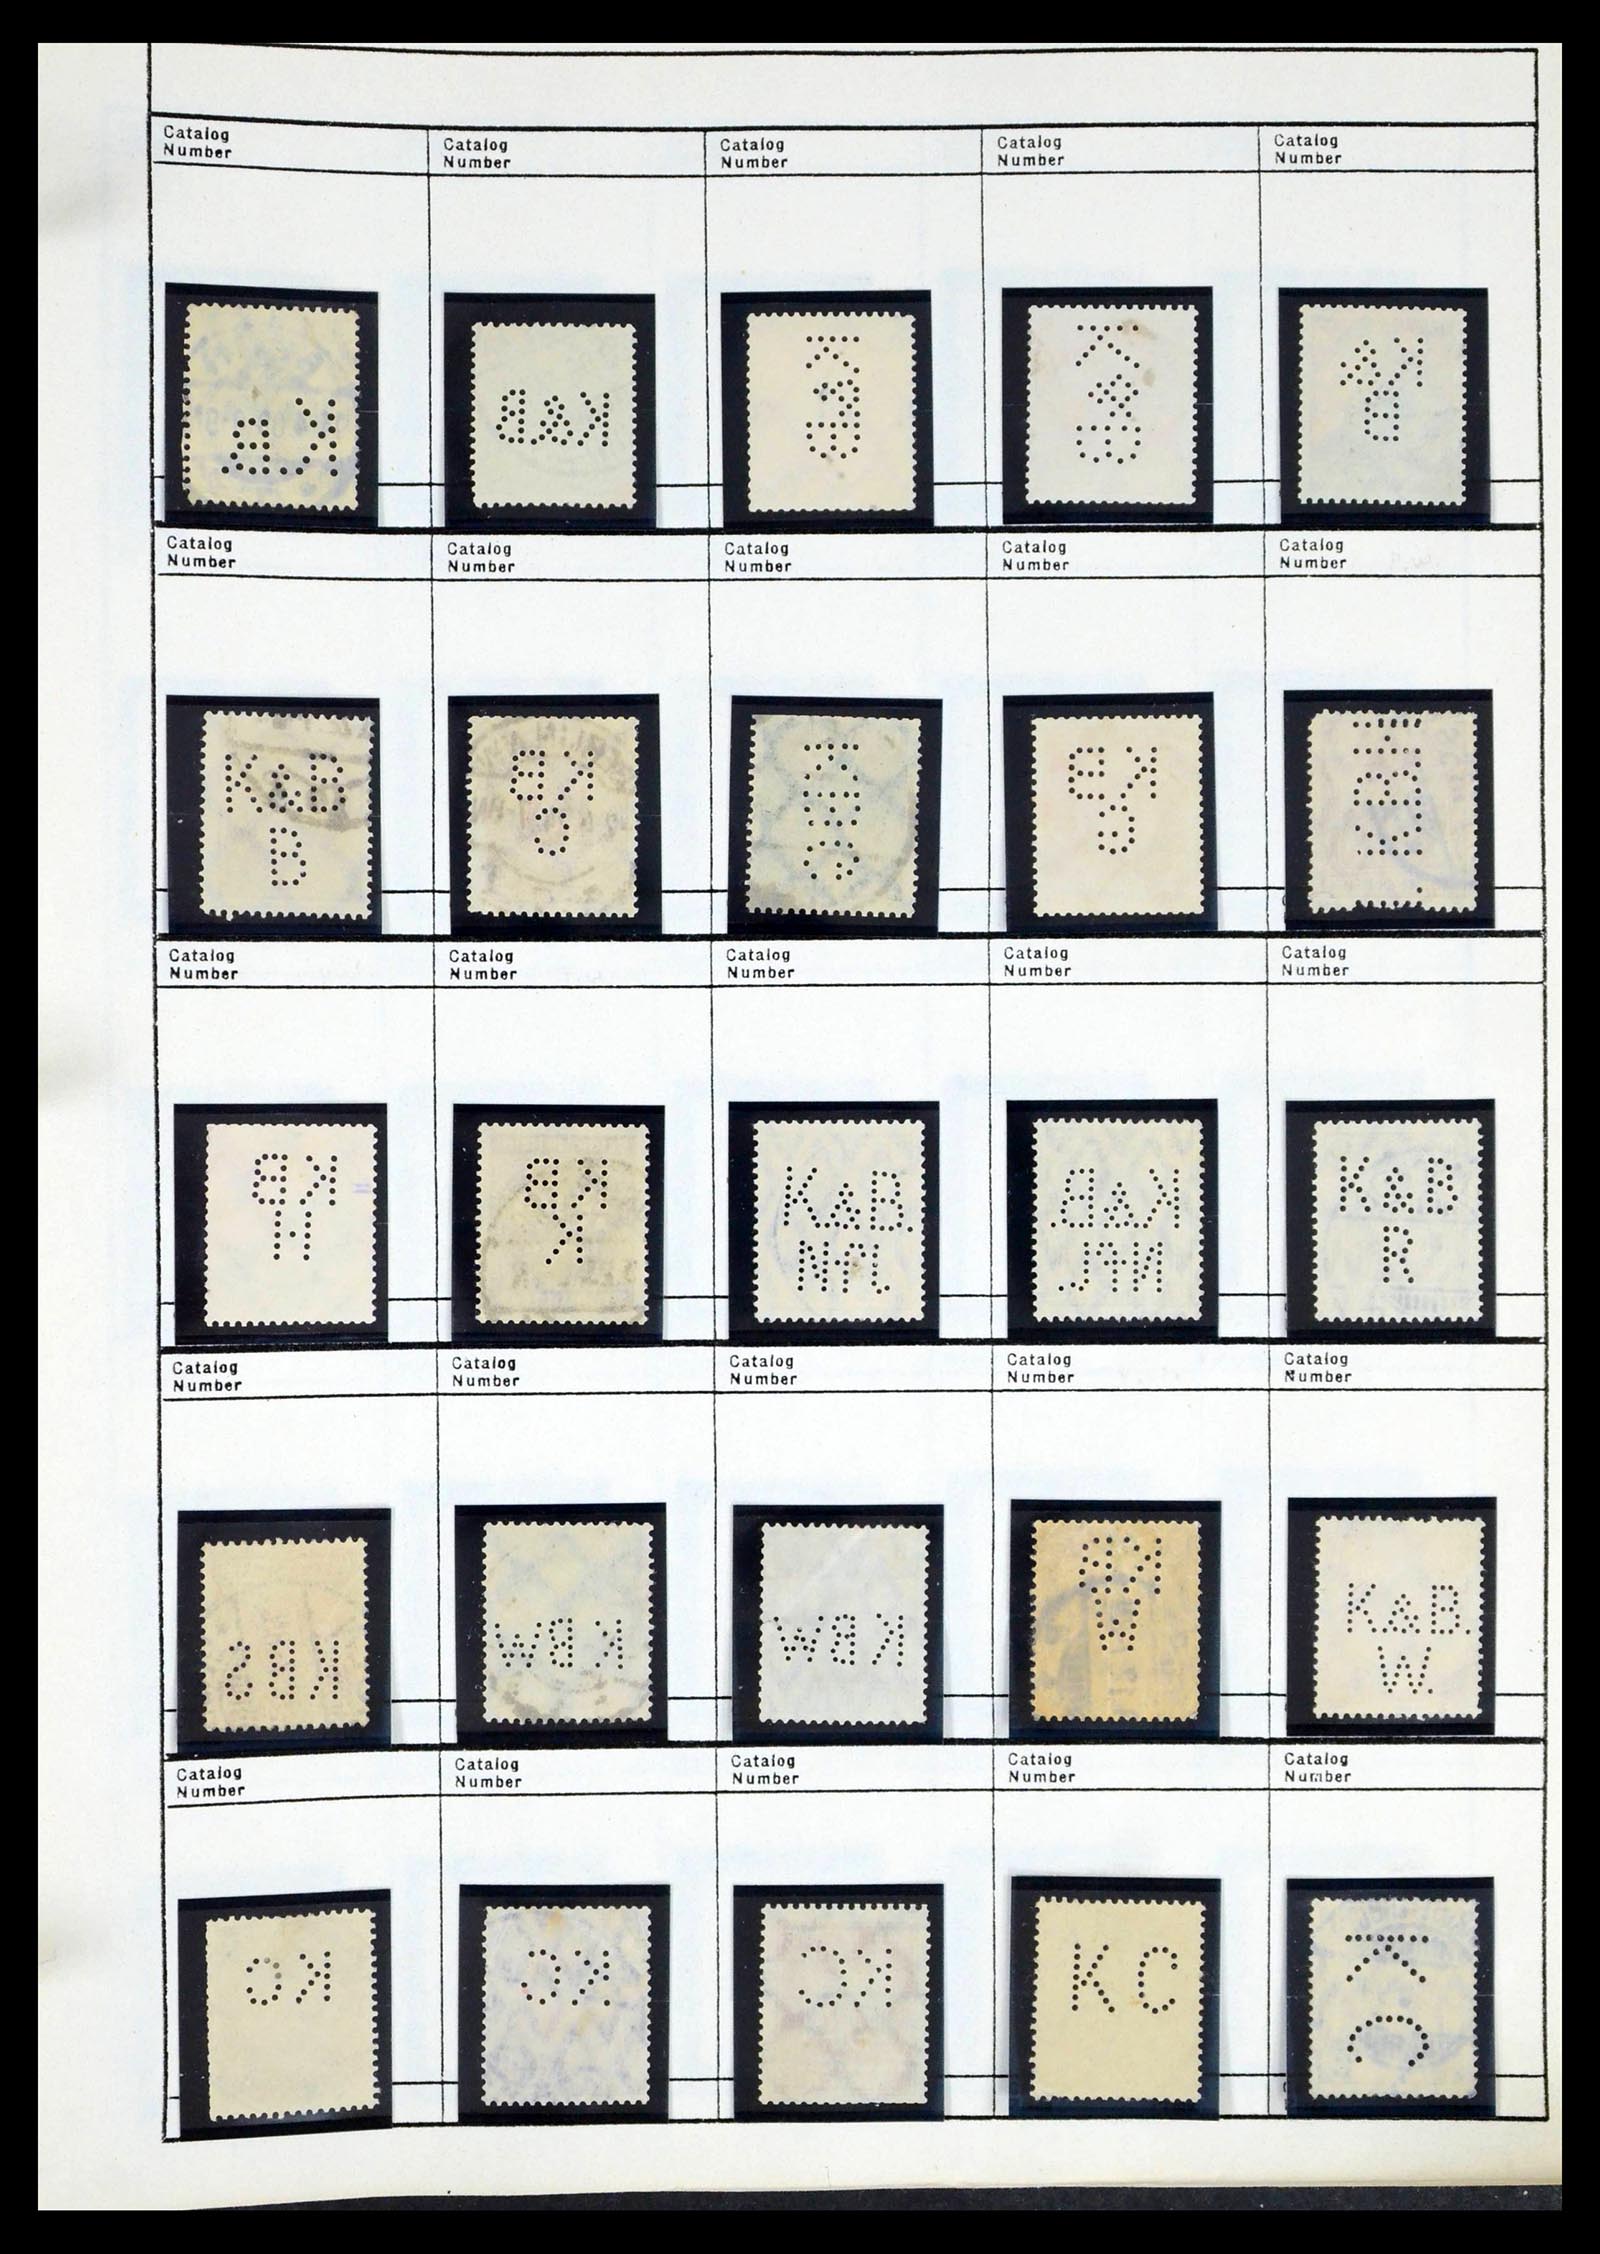 Catalog Number Catalog Number Catalog Number Catalog Number Catalog Number
KB K&B K&B K&B K&B
Catalog Number Catalog Number Catalog Number Catalog Number Catalog Number
K&B
B
KB
C
KB
G
Catalog Number Catalog Number Catalog Number Catalog Number Catalog Number
KB
H
KB
K
K&B.
K&B.
K&B
R
Catalog Number Catalog Number Catalog Number Catalog Number Catalog Number
KBS KBW KBW
KB
W
K&B.
W.
Catalog Number Catalog Number Catalog Number Catalog Number Catalog Number
KC KC KC KC KC